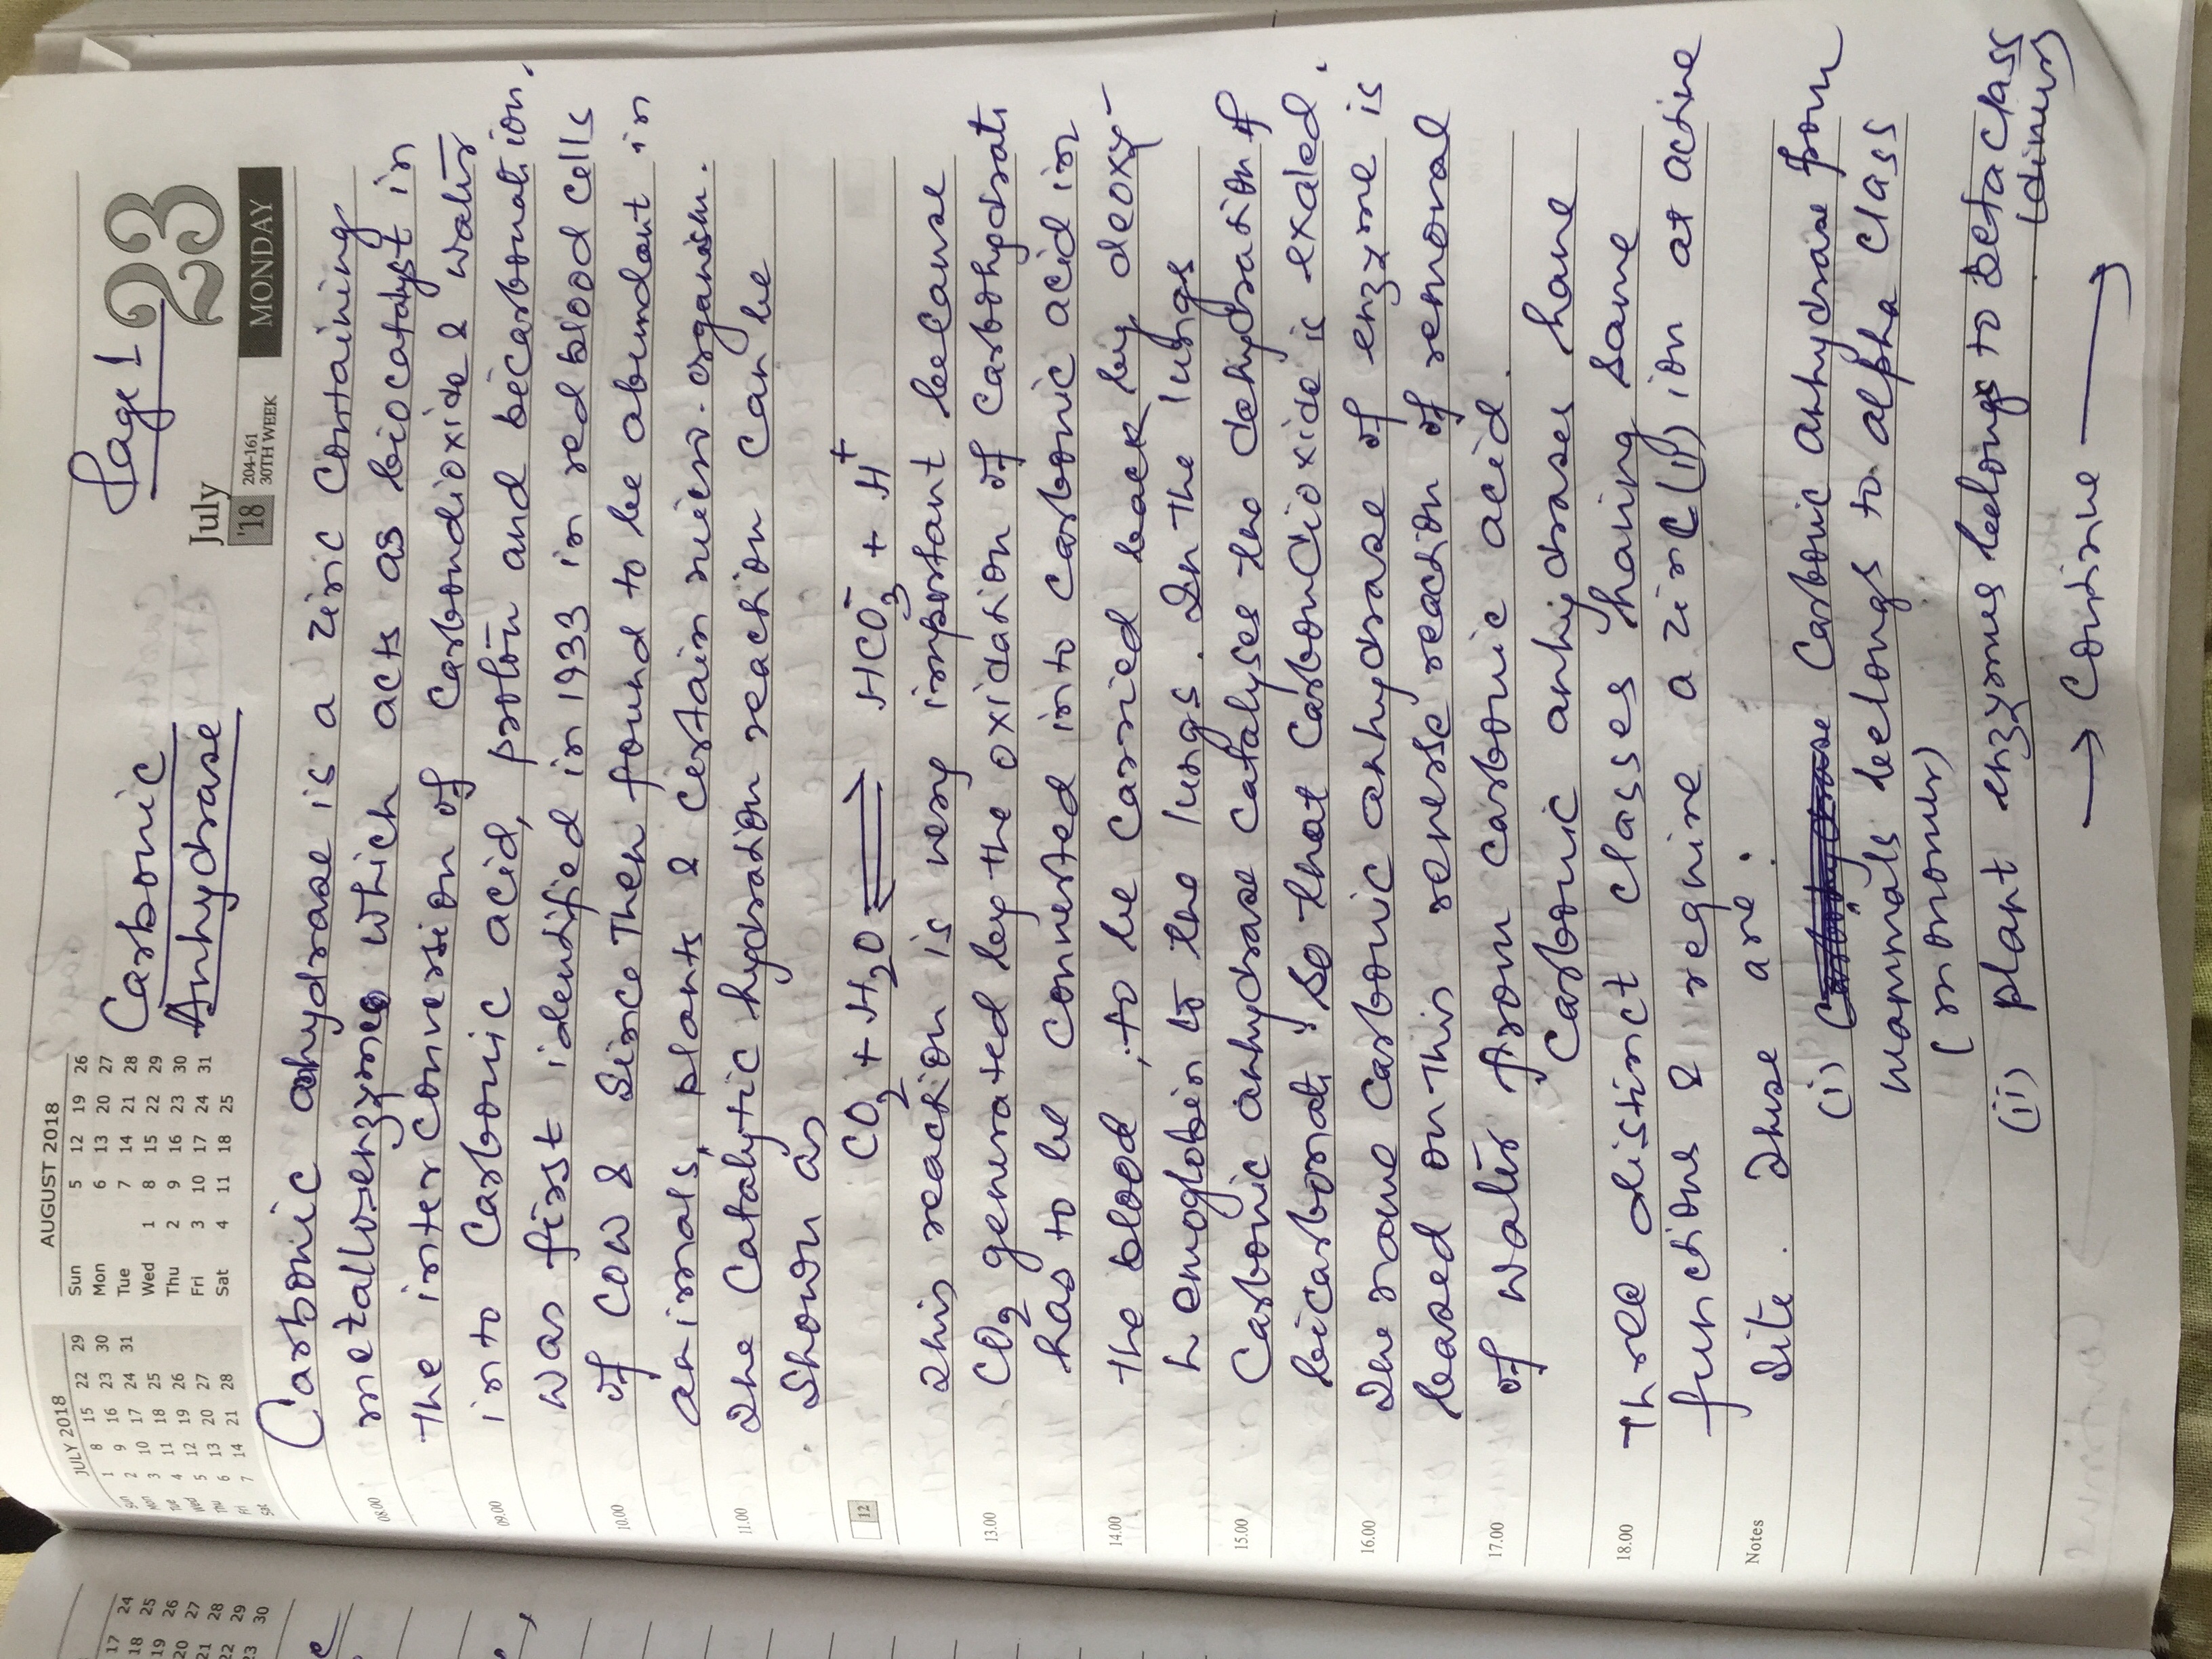 Page 1
July 23
'18 204-161 30TH WEEK MONDAY
JULY 2018
Sun 1 8 15 22 29
Mon 2 9 16 23 30
Tue 3 10 17 24 31
Wed 4 11 18 25
Thu 5 12 19 26
Fri 6 13 20 27
Sat 7 14 21 28
AUGUST 2018
Sun 5 12 19 26
Mon 6 13 20 27
Tue 7 14 21 28
Wed 1 8 15 22 29
Thu 2 9 16 23 30
Fri 3 10 17 24 31
Sat 4 11 18 25
Carbonic
Anhydrase
Carbonic anhydrase is a zinc containing
metalloenzyme which acts as biocatalyst in
08.00
the interconversion of Carbondioxide & water
into Carbonic acid, proton and bicarbonation.
09.00
was first idendified in 1933 in red blood cells
of cow & Since Then found to be abundant in
10.00
animals, plants & certain micro-organism.
The Catalytic hydration reaction can be
11.00
Shown as
CO2 + H2O ⇌ HCO3- + H+
12
This reaction is very important because
CO2 generated by the oxidation of Carbohydrats
13.00
has to be converted into carbonic acid in
the blood, to be carried back by deoxy-
14.00
hemoglobin to the lungs. In the lungs
Carbonic anhydrase catalyses the dehydration of
15.00
bicarborat. So that Carbondioxide is exaled.
The name Carbonic anhydrase of enzyme is
16.00
based on-this reverse reaction of removal
of water from carbonic acid.
17.00
Carbonic anhydrases have
Three distinct classes having same
18.00
functions & require a zinc (II) ion at active
Site. These are.
Notes
(i) Carbonic anhydrase from
mammals belongs to alpha class
(monomer)
(ii) plant enzymes belongs to beta class
(dimers)
→ Continue →
17 24
18 25
19 26
20 27
21 28
22 29
23 30